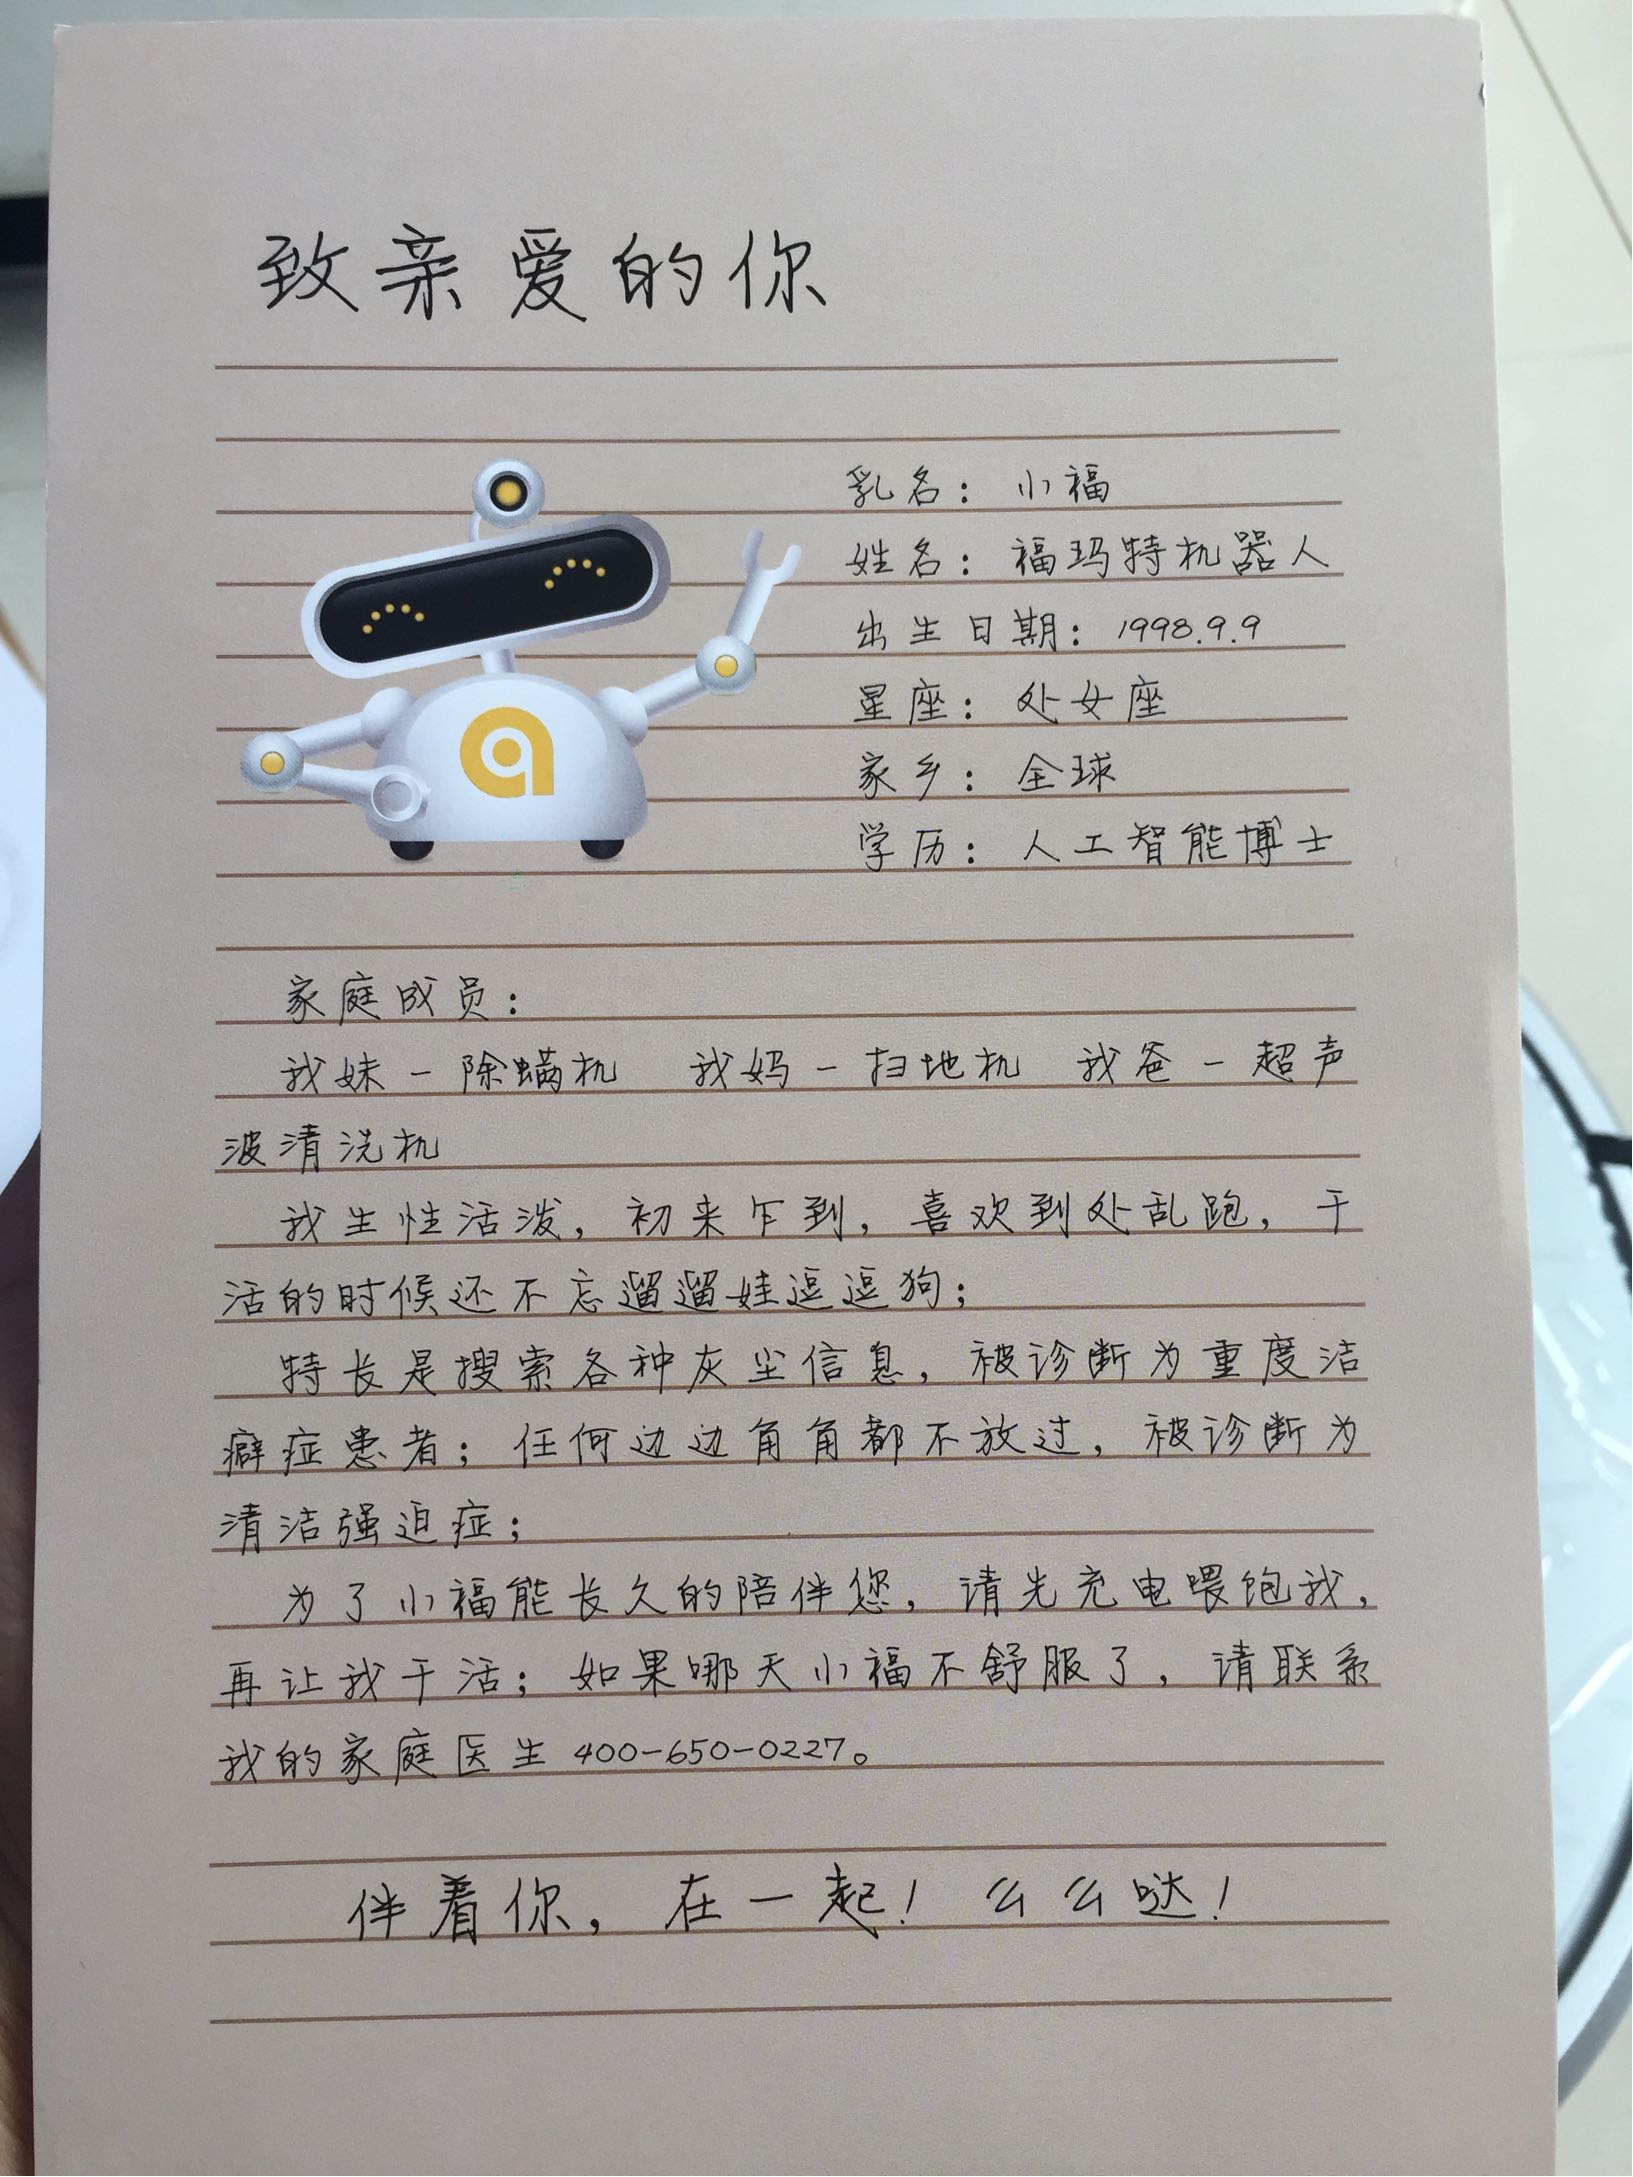 致亲爱的你
乳名：小福
姓名：福玛特机器人
出生日期：1998.9.9
星座：处女座
家乡：全球
学历：人工智能博士
家庭成员：
我妹－除螨机 我妈－扫地机 我爸－超声
波清洗机
我生性活泼，初来乍到，喜欢到处乱跑，干
活的时候还不忘遛遛娃逗逗狗；
特长是搜索各种灰尘信息，被诊断为重度洁
癖症患者；任何边边角角都不放过，被诊断为
清洁强迫症；
为了小福能长久的陪伴您，请先充电喂饱我，
再让我干活；如果哪天小福不舒服了，请联系
我的家庭医生400-650-0227。
伴着你，在一起！么么哒！